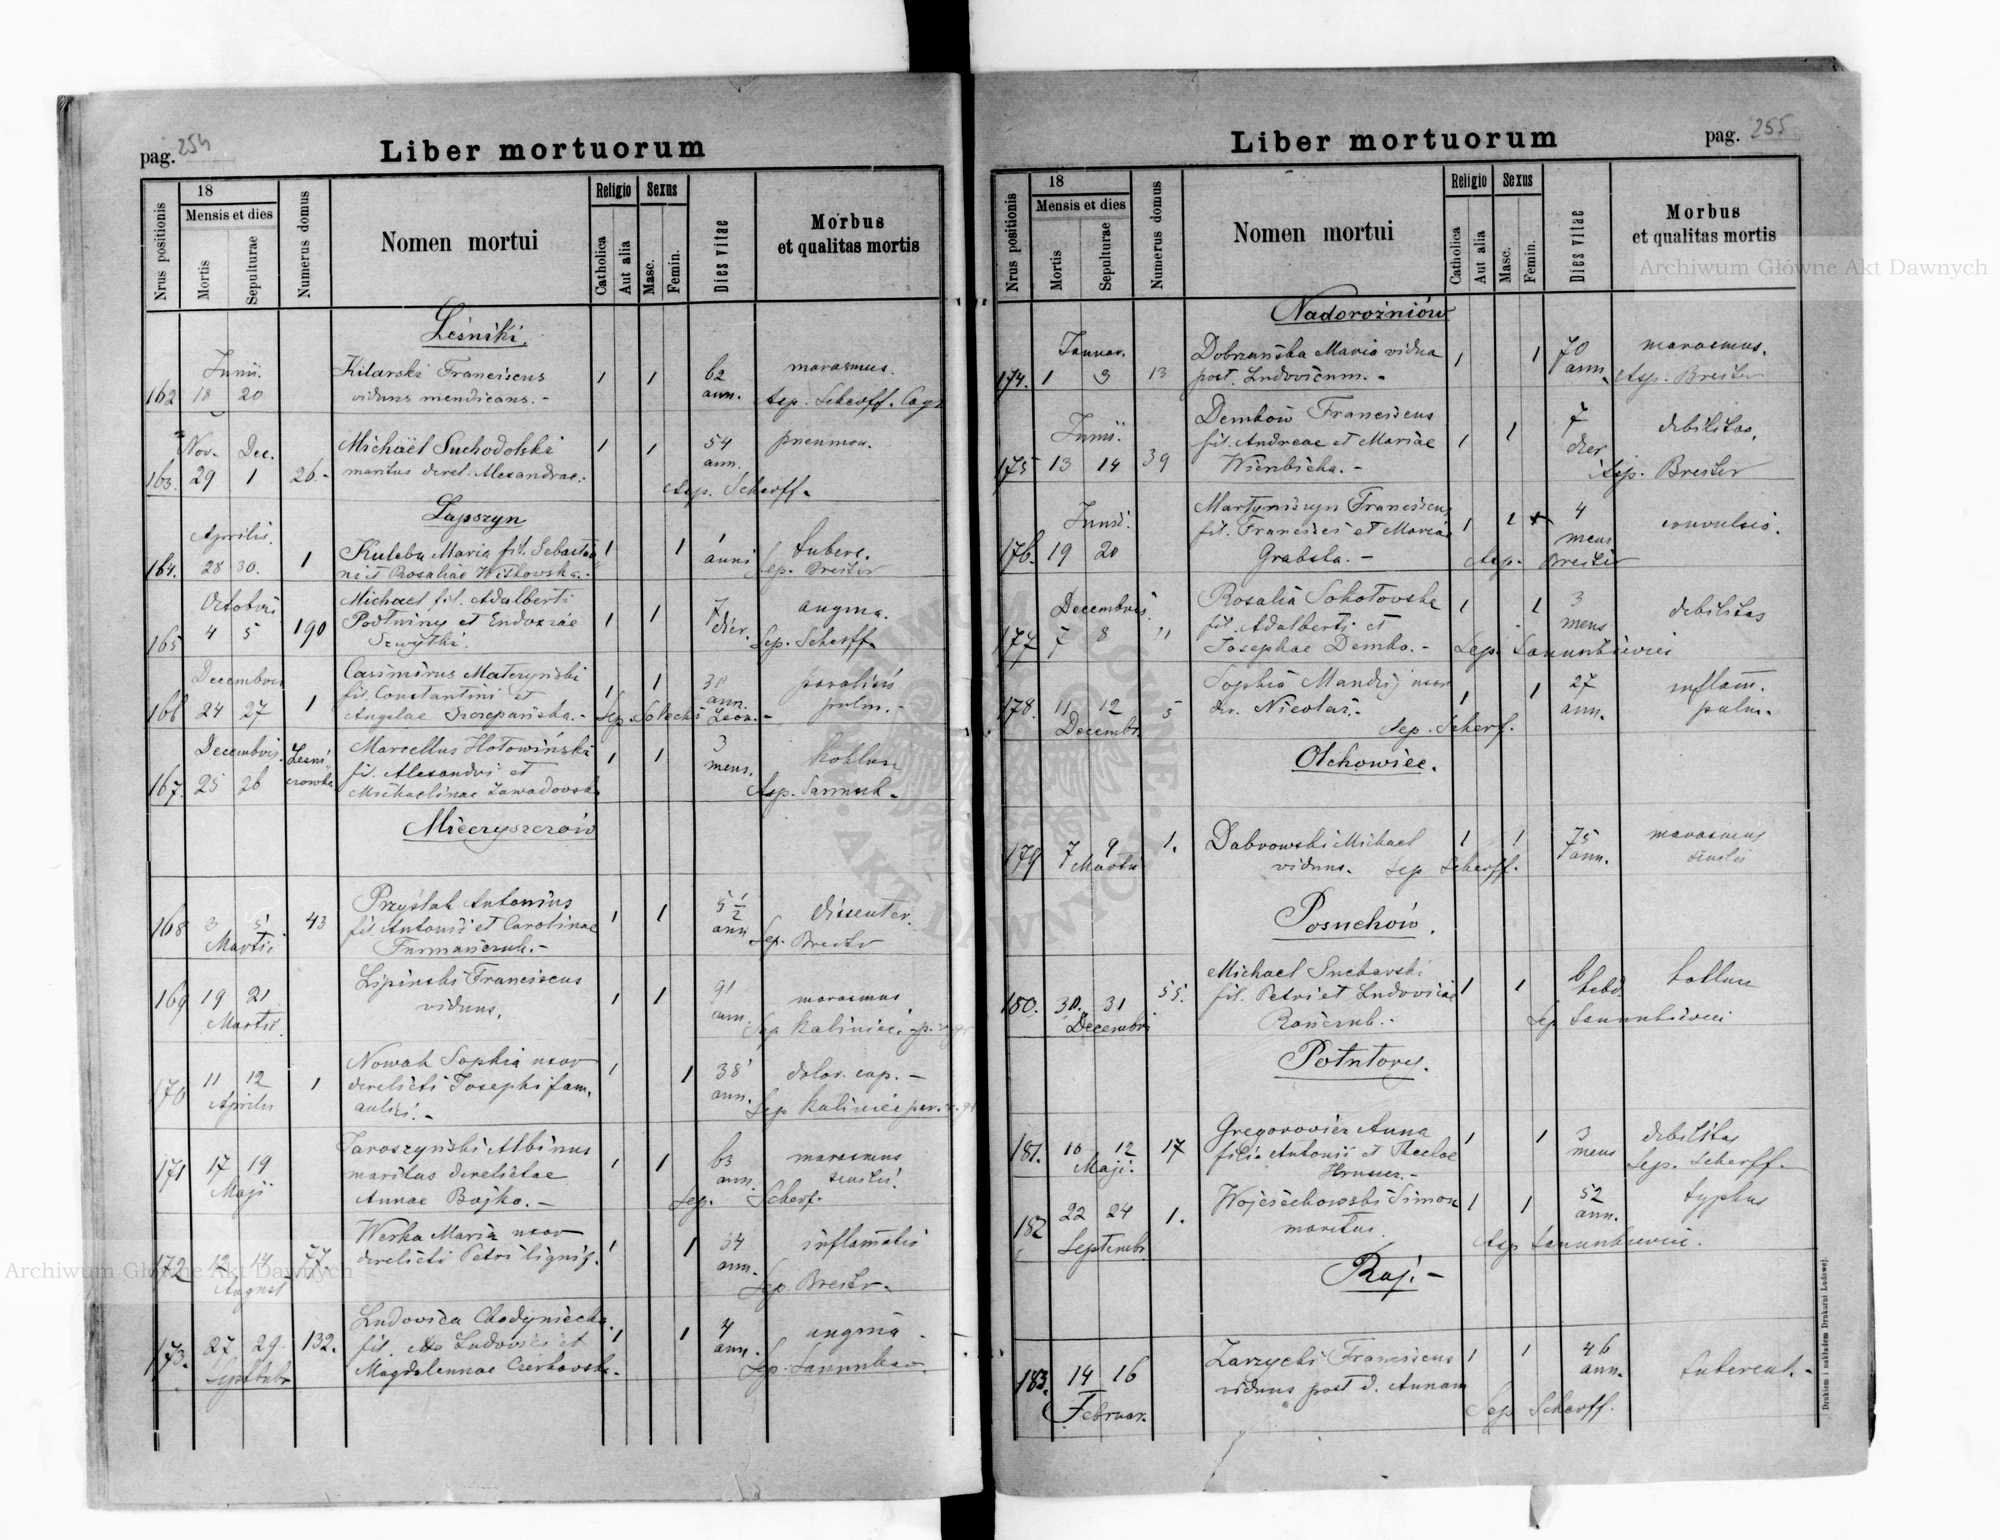 pag. 254
Liber mortuorum
Nrus positionis
18
Mensis et dies
Mortis
Sepulturae
Numerus domus
Nomen mortui
Religio
Catholica
Aut alia
Sexus
Masc.
Femin.
Dies vitae
Morbus
et qualitas mortis
Leśniki.
Junii.
162 18 20 Kilarski Franciscus 1 1 62 marasmus.
viduus mendicans. - ann. Sep. Scherff. Coop
Nov. Dec.
163. 29 1 26.- Michaël Suchodolski 1 1 54 pneumon.
maritus derel. Alexandrae. ann.
Sep. Scherff.
Łapszyn
Aprilis.
164. 28 30. 1 Kuleba Maria fil. Sebastia 1 1 1 tuberc.
ni et Rosaliae Witkowska. anni Sep. Breiter
Octobris
165 4 5 190 Michael fil. Adalberti 1 1 7 angina.
et Eudoxiae dier. Sep. Scherff
Decembris
166 24 27 1 Casimirus Matczyński 1 1 paralisis
fil. Constantini et ann. pulm. -
Angelae Szczepańska. - Sep. Solecki Leon. -
Decembris.
167. 25 26 Marcellus Hołowiński 1 1 3
fil. Alexandri et mens.
Michaelinae Zawadowska Sep. Sannuk.
Mieczyszczów
168 3 5 43 Przystak Antonius 1 1 5 1/2 dissenter.
Martii fil. Antonii et Carolinae ann Sep. Breiter
Furmańczuk. -
169 19 21 Lipinski Franciscus 1 1 91 marasmus
Martii. viduus. ann. Sep Kaliniewi
170 11 12 1 Nowak Sophia uxor 1 1 38 dolor. cap. -
Aprilis derelicti Josephi fam. ann. Sep
171 17 19 Jaroszyński Albinus 1 1 63 marasmus
Maji maritus derelictae ann. senilis.
Annae Bojko. - Sep. Scherf.
172 12 14 77. Werka Maria uxor 1 1 34 inflamatio
August derelicti Petri ann. Sep. Breiter.
173. 27 29. 132. Ludovica Chodyniecka. 1 1 4 angina
Septbbr fil. Ludovici et ann. Sep.
Magdalennae Czerkawska.
pag. 255
Liber mortuorum
Nrus positionis
18
Mensis et dies
Mortis
Sepulturae
Numerus domus
Nomen mortui
Religio
Catholica
Aut alia
Sexus
Masc.
Femin.
Dies vitae
Morbus
et qualitas mortis
Nadorożniów
Januar.
174. 1 3 13 Dobrzańska Maria vidua 1 1 70 marasmus.
post. Ludovicum. - ann. Sep. Breiter
Junii.
175 13 14 39 Dembów Franciscus 1 1 7 debilitas.
fil. Andreae et Mariae dier Sep. Breiter
Junii.
176. 19 20 Martyniszyn Franciscus 1 1 4 convulsio.
fil. Francisci et Mariae mens
Grabska. - Sep. Breiter
Decembris.
177 7 8 11 Rosalia Sokołowska 1 1 3 debilitas
fil. Adalberti et mens
Josephae Dembo. - Sep.
178. 11 12 5 Sophia Mandzij uxor 1 1 27 inflam.
Decembr. Nicolai. - ann. pulm.
Sep. Scherf.
Olchowiec.
179 7 9 1. Dabrowski Michael 1 1 75 marasmus
Martii viduus. Sep Scherff. ann. senilis
Posuchów.
180. 30. 31 55. Michael Sucharski 1 1 6
Decembri fil. Petri et Ludovicae hebd.
Sep
Potutory.
181. 10 12 17 Gregorowicz Anna 1 1 3 debilitas
Maji. filia Antonii et Theclae mens Sep. Scherff.
182 22 24 1. Wojciechowski Simon 1 1 52 typhus
Septembr maritus. ann.
Sep
Raj. -
183. 14 16 Zarzycki Franciscus 1 1 46 tubercul. -
Februar. viduus post d. Annam ann.
Sep Scherff.
Drukiem i nakładem Drukarni Ludowej.
Archiwum Główne Akt Dawnych
Archiwum Główne Akt Dawnych